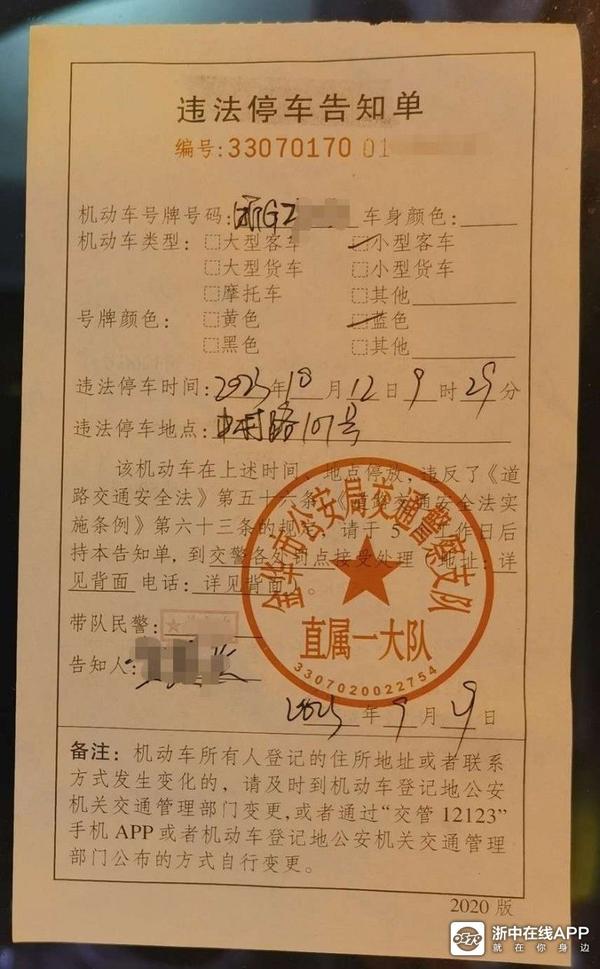 违法停车告知单
编号:33070170 01
机动车号牌号码:浙GZ 车身颜色:
机动车类型: 大型客车 小型客车
大型货车 小型货车
摩托车 其他
号牌颜色: 黄色 蓝色
黑色 其他
违法停车时间:2023年10月12日9时29分
违法停车地点: 村路107号
该机动车在上述时间、地点停放,违反了《道
路交通安全法》第五十六条、《道路交通安全法实
施条例》第六十三条的规定,请于5 作日后
持本告知单,到交警各处罚点接受处理(地址:详
见背面 电话:详见背面)。
金华市公安局交通警察支队
直属一大队
3307020022754
带队民警:
告知人:
2023年9月29日
备注:机动车所有人登记的住所地址或者联系
方式发生变化的,请及时到机动车登记地公安
机关交通管理部门变更,或者通过“交管12123”
手机APP或者机动车登记地公安机关交通管理
部门公布的方式自行变更。
2020版
浙中在线APP
就在你身边